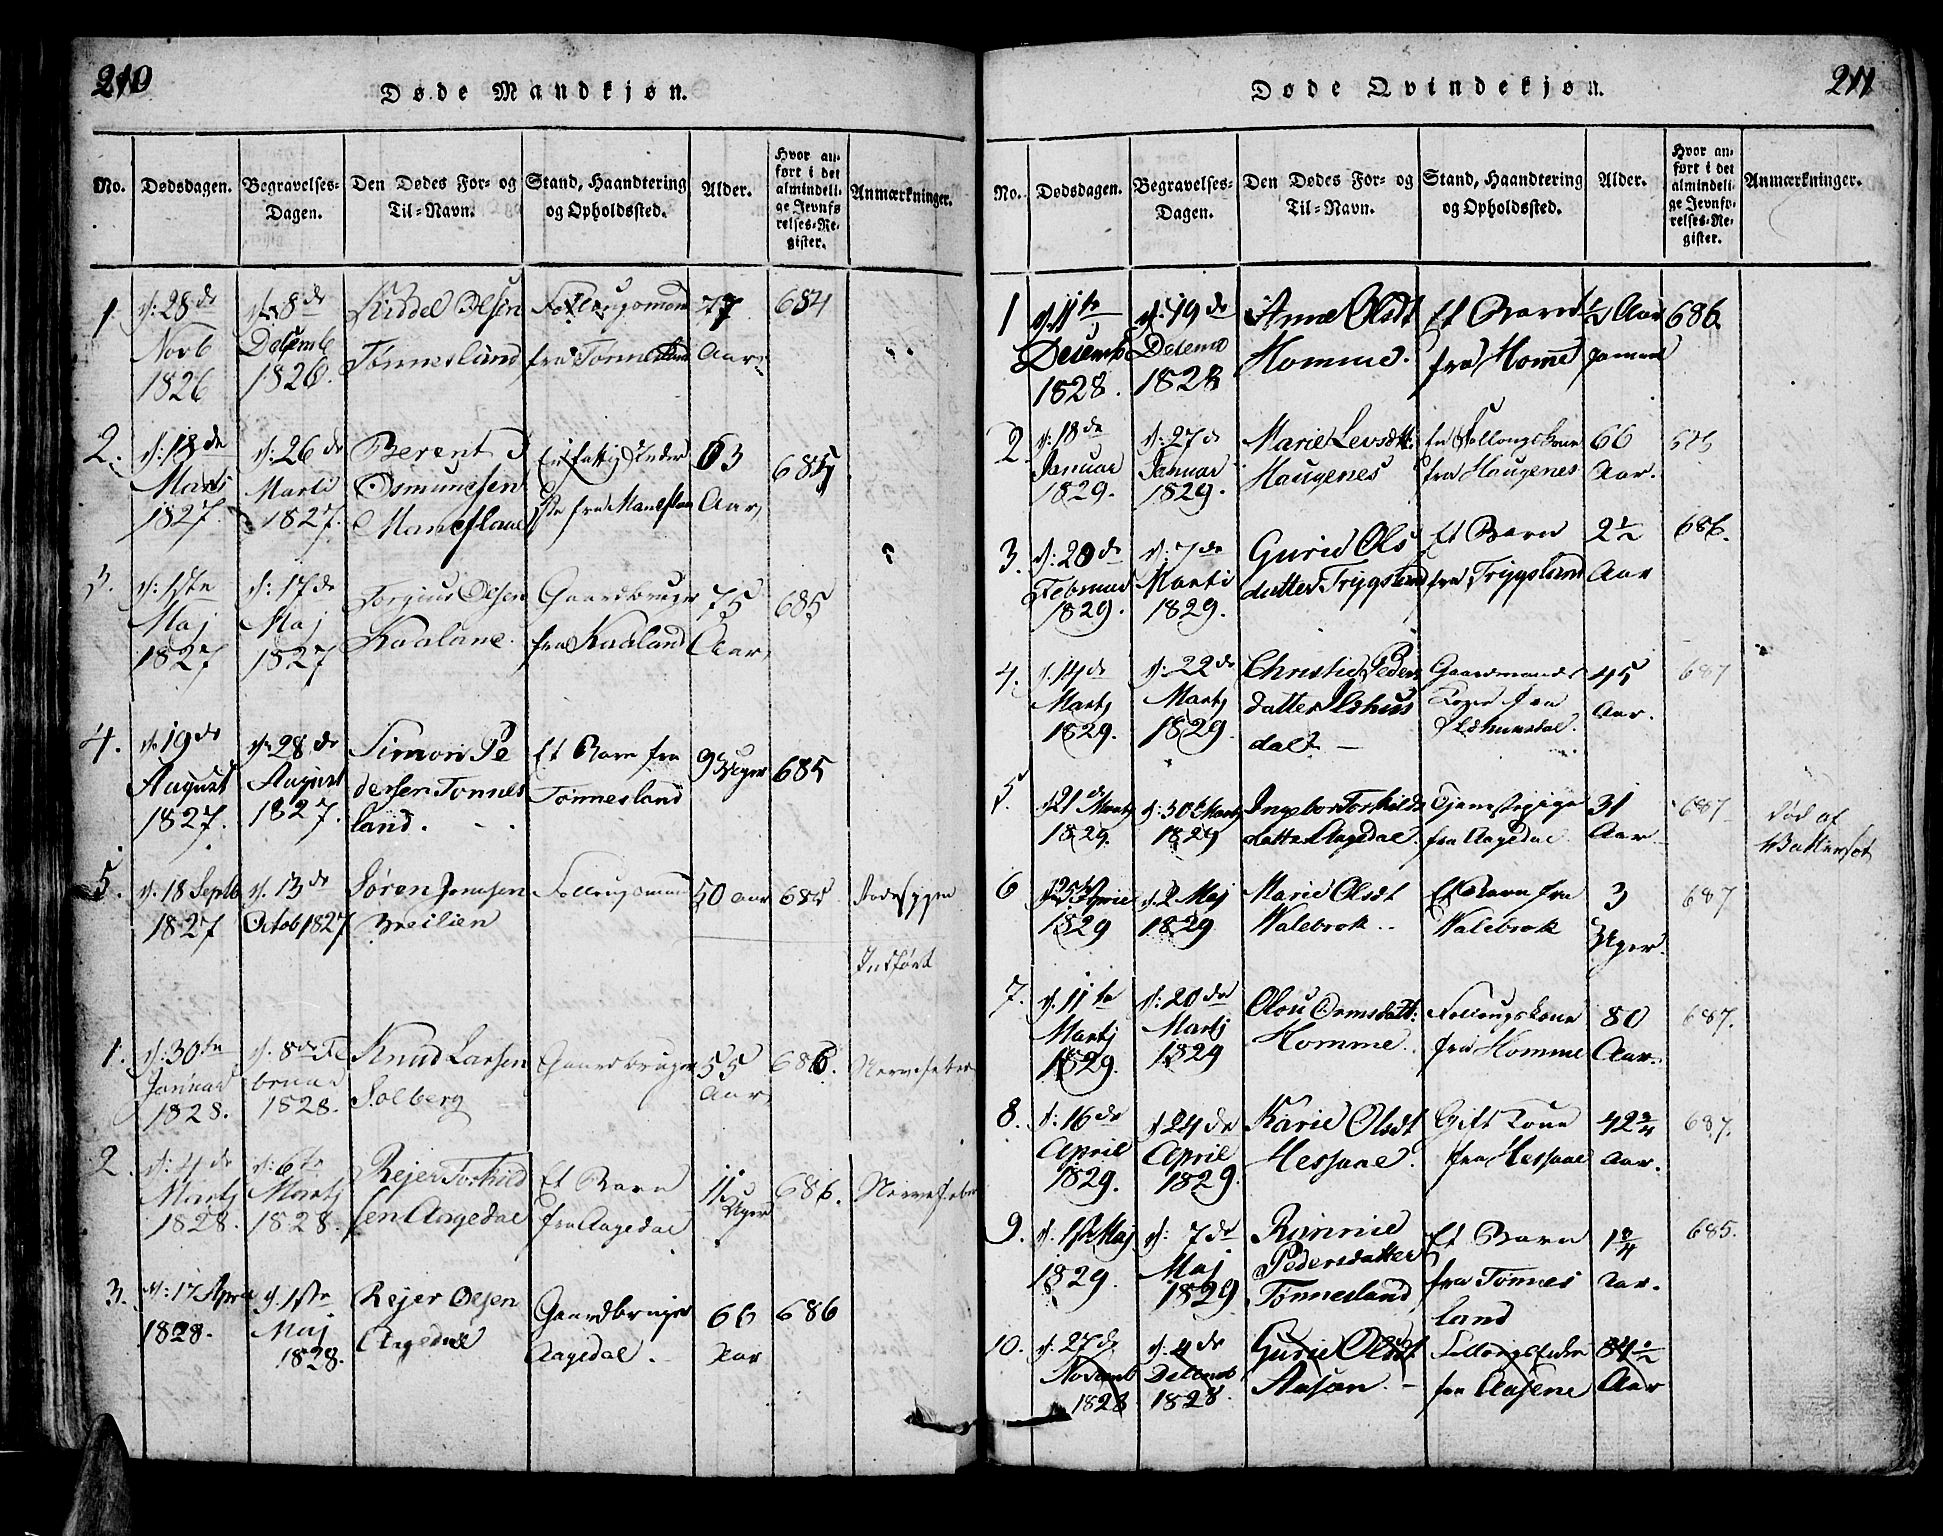 210
Døde Mandkjøn.
No.
Dødsdagen.
Begravelses-
Dagen.
Den Dødes For- og
Til-Navn.
Stand, Haandtering
og Opholdssted.
Alder.
Hvor an-
ført i det
almindeli-
ge Jevnfø
relses-Re-
gister.
Anmærkninger.
1. d: 28de Novb 1826 d: 8de Decemb 1826. Kiddel Olsen Tønnesland fra Tønnesland 77 Aar 684
2. Marti 1827. d: 26de Marti 1827. Berent Osmundsen fra 63 Aar 685
3. d: 1ste Maj 1827 d: 17de Maj 1827 Torgius Olsen Kaaland Gaardbruger fra Kaaland 75 Aar 685
4. d: 19de August 1827. d: 28de August 1827. Simon Pedersen Tønnesland. Et Barn fra Tønnesland 9 Uger 685
5. d: 18 Septb 1827 d: 13de Octob 1827 Søren Jensen Breilien 50 aar 685
Indført
1. d: 30te Januar 1828. d: 8de Februar 1828. Knud Larsen Solberg Gaardbruger 55 Aar 686. Nervefeber
2. d: 4de Martj 1828. d: 6te Martj 1828. Rejer Torkildsen Aagedal Et Barn fra Aagedal 11 Uger 686. Nervefeber
3. d: 17 April 1828. d. 1ste Maj 1828. Rejer Olsen Aagedal Gaardbruger Aagedal. 66 Aar 686
211
Døde Qvindekjøn.
No.
Dødsdagen.
Begravelses-
Dagen.
Den Dødes For- og
Til-Navn.
Stand, Haandtering
og Opholdssted.
Alder.
Hvor an-
ført i det
almindeli-
ge Jevnfø-
relses-Re-
gister.
Anmærkninger.
1 d. 11te Decemb 1828. d. 19de Decemb 1828 Anne Olsdt Homme. Et Barn fra Homme ½ Aar 686.
2 d: 18de Januar 1829. d: 27de Januar 1829. Marie Haugenes fra Haugenes 66 Aar.
3. d: 20de Februar 1829. d: 7de Marti 1829. Gurie Olsdatter Trygsland Et Barn fra Trygsland 2½ Aar 686.
4. d. 14de Martj 1829. d. 22de Martj 1829. Christie Pedersdatter Gaardmands fra 45 Aar. 687
5. d 21de Martj 1829. d. 30te Martj 1829 Ingebor Torkildsdatter Aagedal. Tjenestepige fra Aagedal 31 Aar 687 Død af
6 April 1829 d. 2 Maj 1829. Marie Olsdt Walebrok Et Barn fra Walebrok 3 Uger. 687
7. d. 11te Martj 1829. d: 20de Martj 1829 Homme. fra Homme 80 Aar. 687.
8. d: 16de April 1829. d 24de April 1829. Karie Olsdt Gift Kone fra 42¾ Aar. 687.
9. d: 1ste Maj 1829. d: 7de Maj 1829 Rønnie Pedersdatter Tønnesland Et Barn fra Tønnesland 1¾ Aar. 685.
10. d. 27de Novemb 1828 d. 4de Decemb 1828. Gurie Olsdt fra 84½ Aar